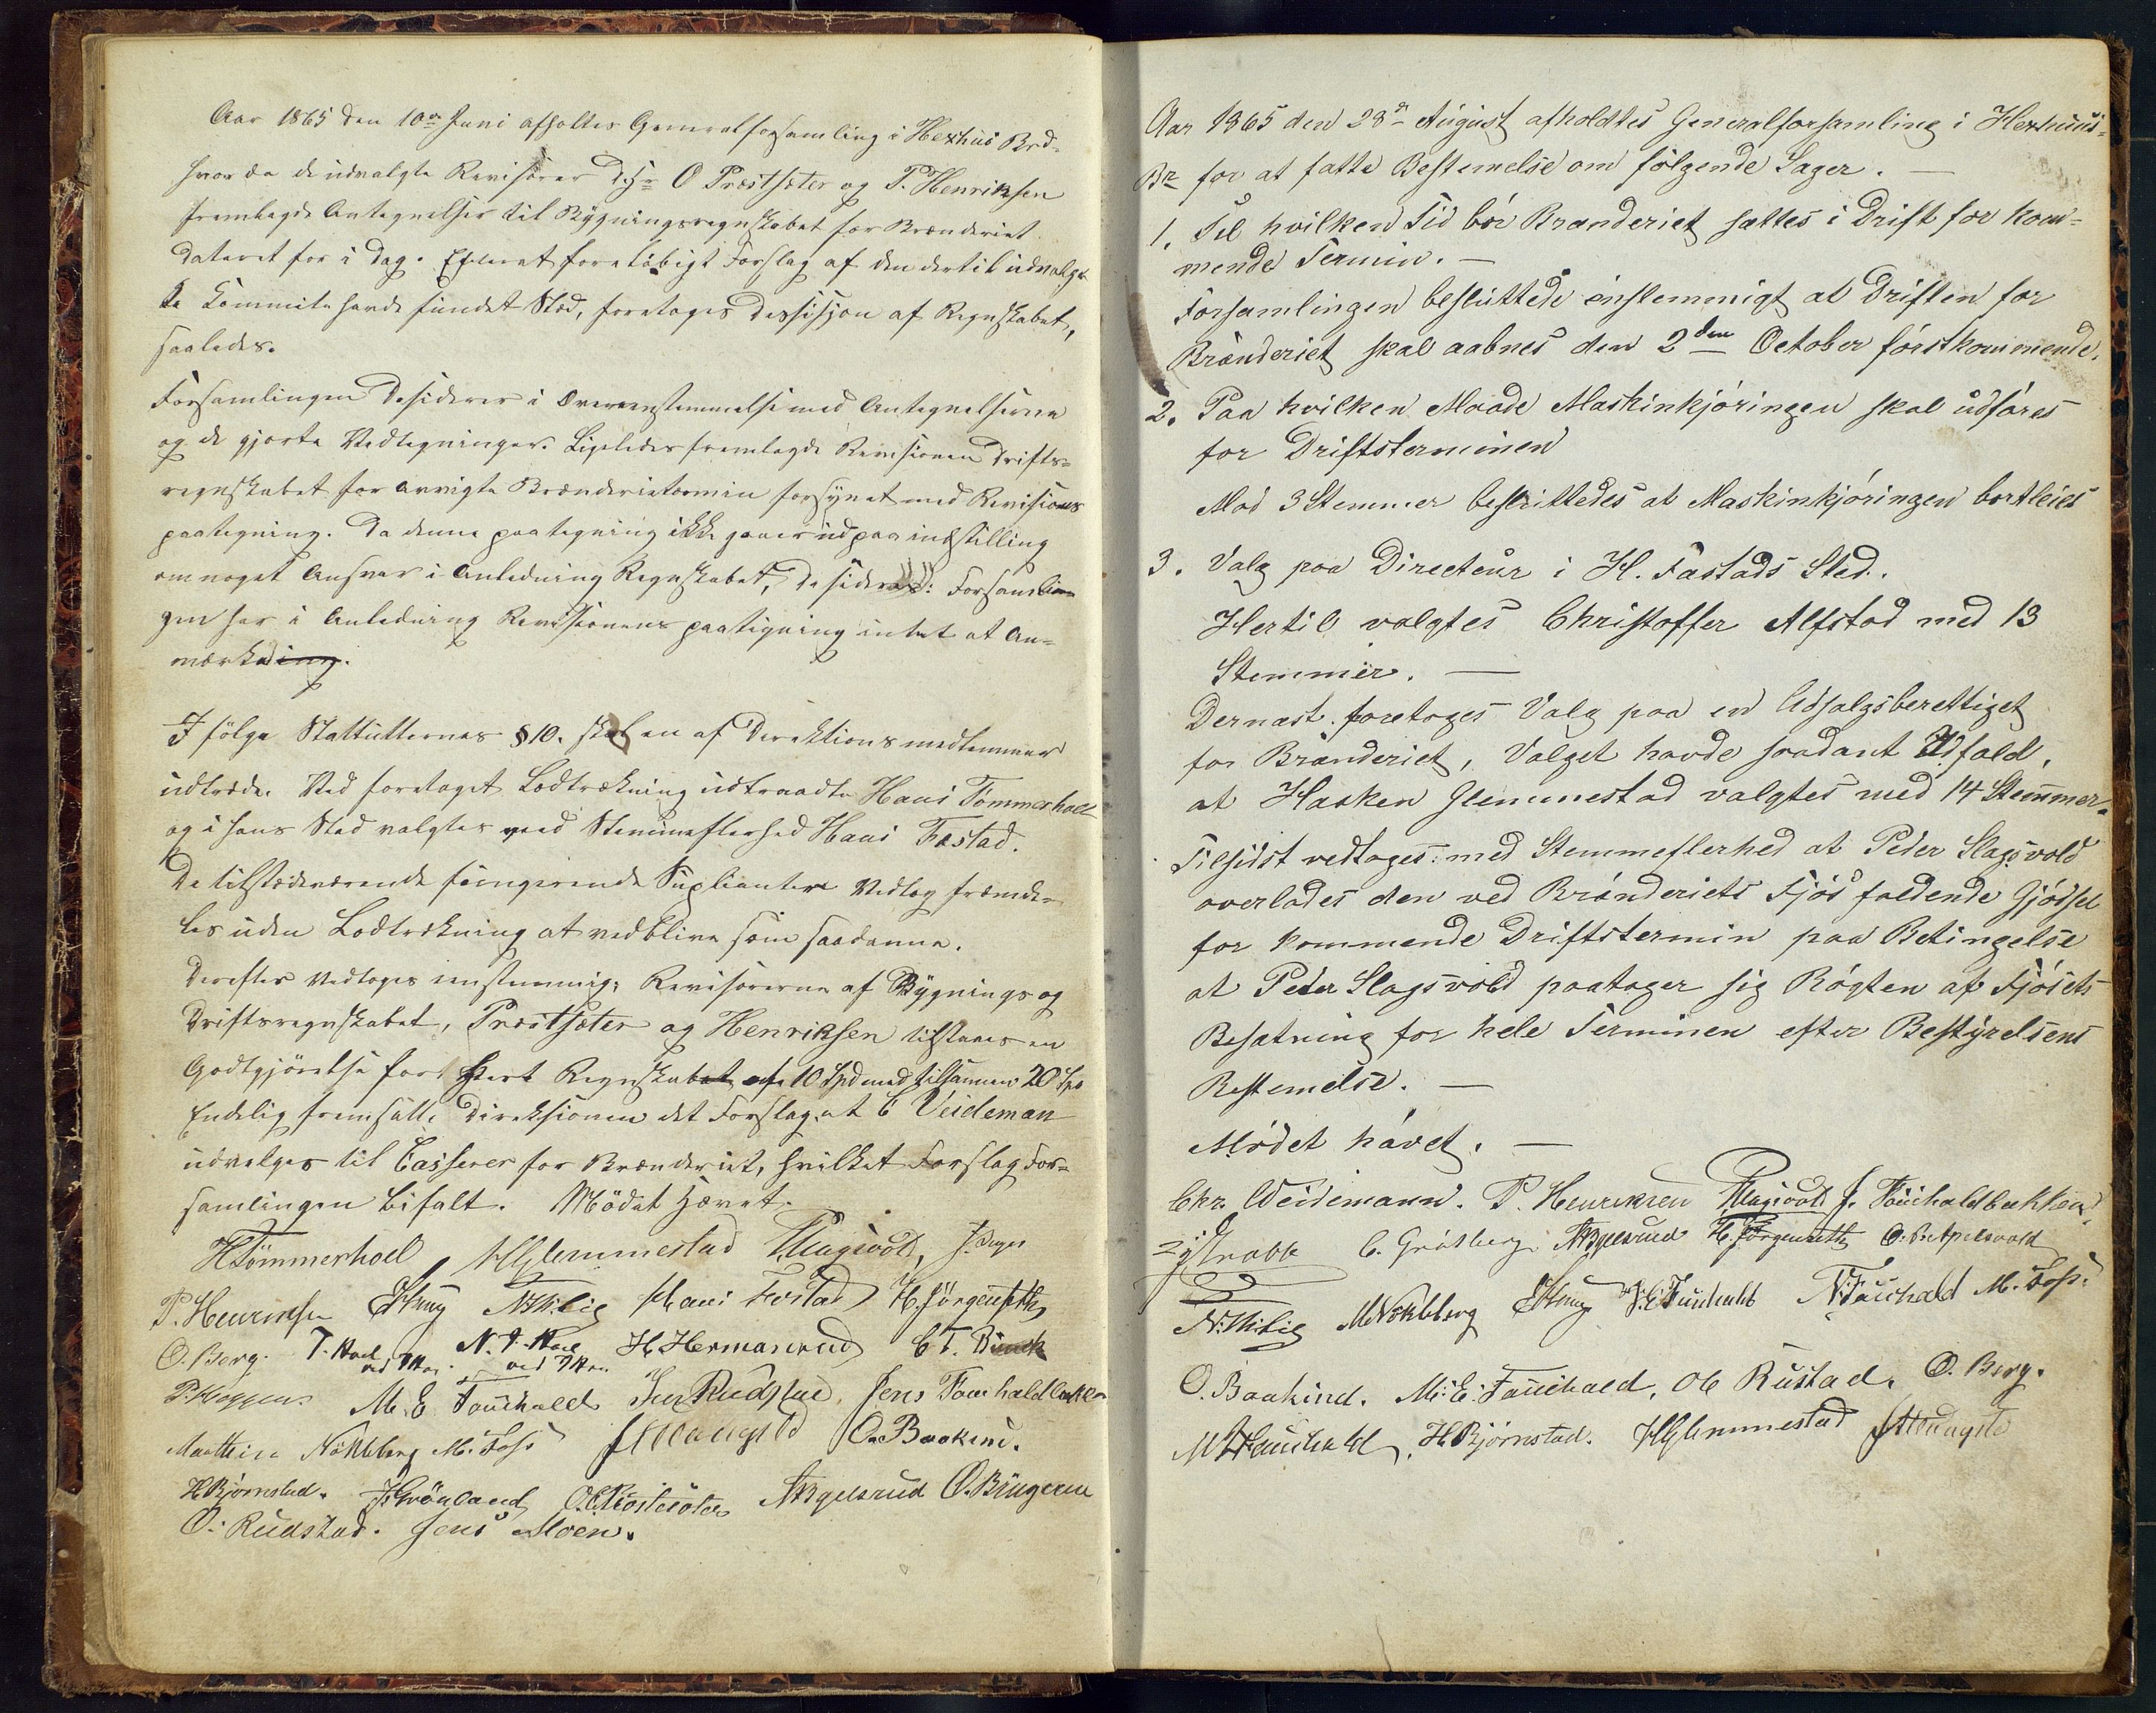 Aar 1865 den 10de Juni afholtes Generalforsamling i Hexhus Brd.
hvor da de udvalgte Revisorer DHr O Præstsæter og P. Henriksen
fremlagde Antegnelser til Bygningsregnskabet for Brænderiet
dateret for i Dag. Efterat foreløbigt Forslag af den dertil udvalg-
te Commite havde fundet Sted, foretoges Dessisjon af Regnskabet,
saaledes.
Forsamlingen Desiderer i Overensstemmelse med Antegnelserne
og de gjorte Vedtegninger. Ligeledes fremlagde Revisionen Drifts-
regnskabet for avvigte Brænderietermin forsynet med Revisions
paategning. Da denne paategning ikke gaaer ud paa indstilling
om noget Ansvar i Anledning Regnskabet, Desideres: Forsamlin-
gen har i Anledning Revisionens paategning intet at An-
mærke.
I følge Stattutternes § 10. skal en af Direktionsmedlemmer
udtræde. Ved foretaget Lodtrækning udtraadte Hans Tömmerhoel
og i hans Sted valgtes ved Stemmeflerhed Hans Fæstad.
De tilstædeværende fungerende Suplianter Vedtog fremde-
les uden Lodtrækning at vedblive som saadanne.
Derefter Vedtoges enstemmig, Revisorerne af Bygnings og
Driftsregnskabet, Præstsæter og Henriksen tilstaaes en
Godtgjörelse for hvert Regnskab af 10 Spd med tilsammen 20 Spd
Endelig fremsatte Direksionen det Forslag, at C Veideman
udvelges til Casserer for Brænderiet, hvilket Forslag For-
samlingen bifalt. Mödet Hævet.
HTömmerhoel HGlemmestad PSlagsvold, J.
P. Henriksen EKrug NMilie Hans Festad H. Jörgenseth
O. Berg. T. Hoel N. P. Hoel H. Hermanrud C T.
ved Pen. ved Pen.
P. Hoggen. M. E Fauchald Rudstad. Jens Fauchaldbakken
Marthin Nökleberg M. Foss O. Baakind.
H Björnstad. J. Grönland O. Præstsæter AApelsrud O. Bingerud
O. Rudstad. Jens Moen.
Aar 1865 den 28de August afholdtes Generalforsamling i Hexhuus-
Br for at fatte Bestemelse om følgende Sager. —
1. Til hvilken Tid bör Brænderiet sættes i Drift for kom-
mende Termin. —
Forsamlingen besluttede enstemmigt at Driften for
Brænderiet skal aabnes den 2den October førstkommende.
2. Paa hvilken Maade Maskinkjöringen skal udføres
for Driftsterminen
Mod 3 Stemmer besluttedes at Maskinkjöringen bortleies
3. Valg paa Directeur i H. Fastads Sted.
Hertil valgtes Christoffer Alfstad med 13
Stemmer. —
Dernæst foretoges Valg paa en Udsalgsberettiget
for Brænderiet, Valget havde saadant Udfald,
at Haaken Glemmestad valgtes med 14 Stemmer.
Tilsidst vedtoges med Stemmeflerhed at Peder Slagsvold
overlades den ved Brænderiets Fjös faldende Gjödsel
for kommende Driftstermin paa Betingelse
at Peder Slagsvold paatager sig Rögten af Fjösets
Besætning for hele Terminen efter Bestyrelsens
Bestemelse. —
Mödet hævet. —
Chr. Weidemann. P. Henriksen PSlagsvold J. Fauchaldbakken
C. Gröteberg AApelsrud H. Jörgenseth O. P. Apelsvold
N. Milie MNökleberg EKrug J. E Fauchald N. Fauchald M. Foss.
O. Baakind. M. E. Fauchald, Ole Rustad. O. Berg.
M Fauchald, H Björnstad. HGlemmestad